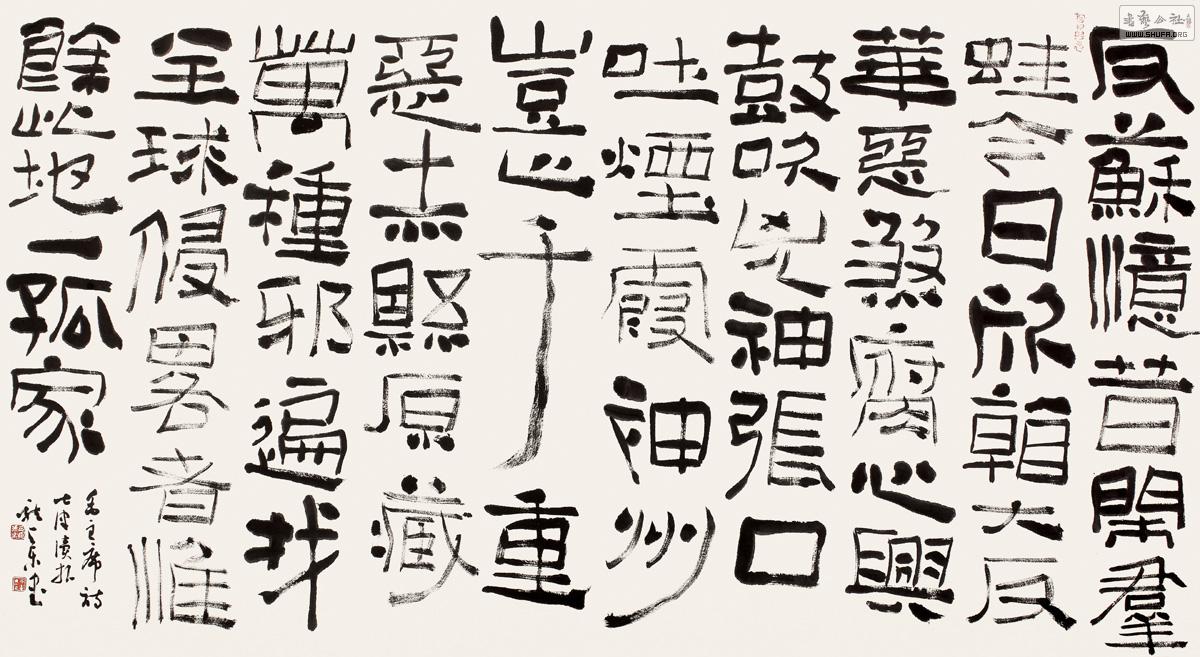 反蘇憶昔鬧羣
蛙今日欣看大反
華惡煞腐心興
鼓吹兇神張口
吐煙霞神州
豈止千重
惡赤縣原藏
萬種邪遍找
全球侵畧者惟
餘此地一孤家
毛主席詩
七律讀報
東書
书艺公社
WWW.SHUFA.ORG